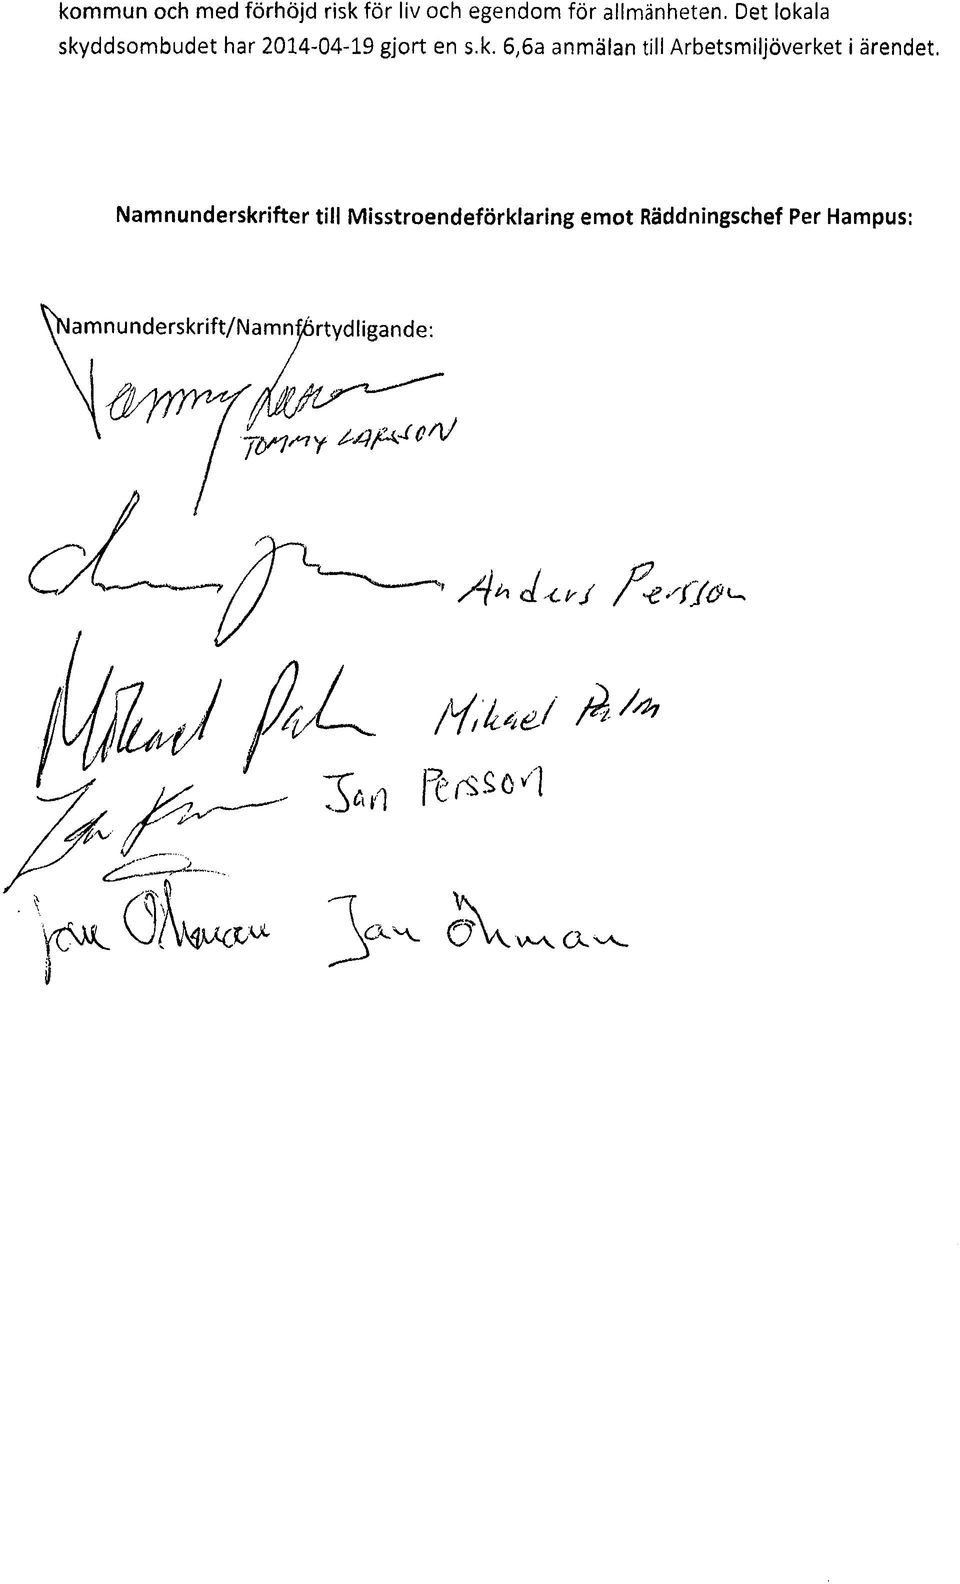 kommun och med förhöjd risk för liv och egendom för allmänheten. Det lokala
skyddsombudet har 2014-04-19 gjort en s.k. 6,6a anmälan till Arbetsmiljöverket i ärendet.
Namnunderskrifter till Misstroendeförklaring emot Räddningschef Per Hampus:
Namnunderskrift/Namnförtydligande:
Tommy Larsson
TOMMY LARSSON
Anders Persson
Mikael Palm Mikael Palm
Jan Persson
Jan Öhman Jan Öhman